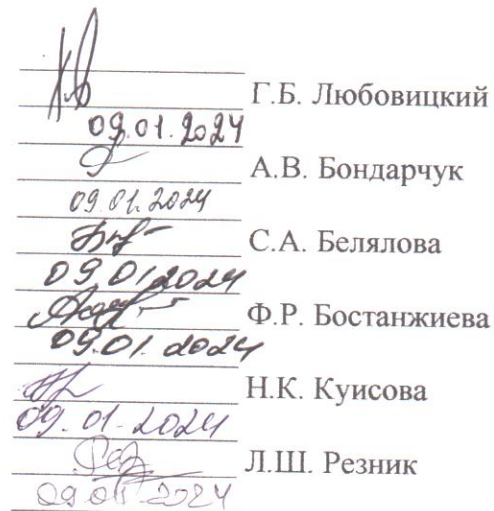 Г.Б. Любовицкий
09.01.2024
А.В. Бондарчук
09.01.2024
С.А. Белялова
09.01.2024
Ф.Р. Бостанжиева
09.01.2024
Н.К. Куисова
09.01.2024
Л.Ш. Резник
09.01.2024